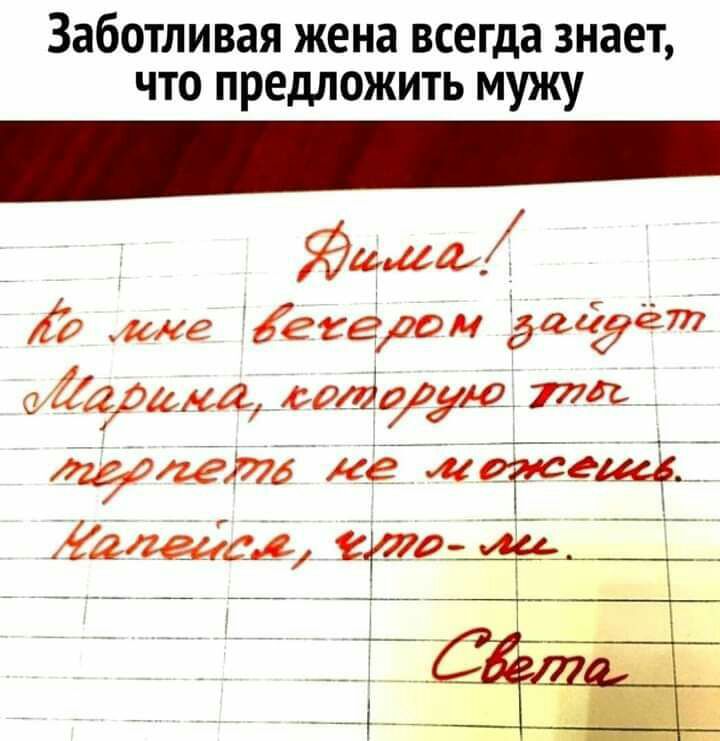 Заботливая жена всегда знает,
что предложить мужу
Дима!
Ко мне вечером зайдёт
Марина, которую ты
терпеть не можешь.
Напейся, что-ли.
Света